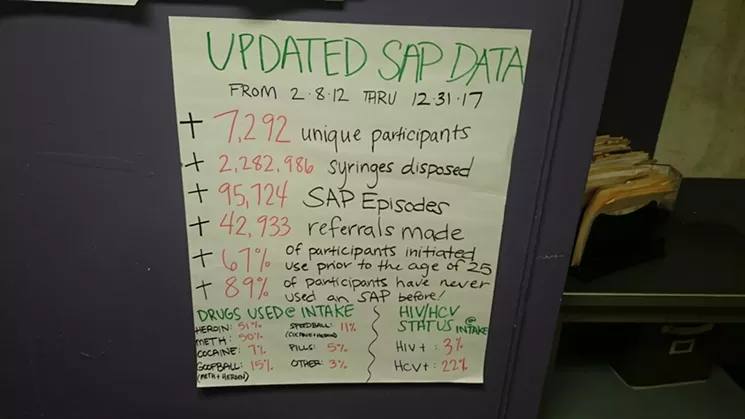 UPDATED SAP DATA
FROM 2·8·12 THRU 12·31·17
+ 7,292 unique participants
+ 2,282,986 syringes disposed
+ 95,724 SAP Episodes
+ 42,933 referrals made
+ 67% of participants initiated
use prior to the age of 25
+ 89% of participants have never
used an SAP before!
DRUGS USED @ INTAKE
HEROIN: 51%
METH: 50%
COCAINE: 7%
GOOFBALL: 15%
(METH + HEROIN)
SPEEDBALL: 11%
(COCAINE + HEROIN)
PILLS: 5%
OTHER: 3%
HIV/HCV
STATUS @ INTAKE
HIV+: 3%
HCV+: 22%